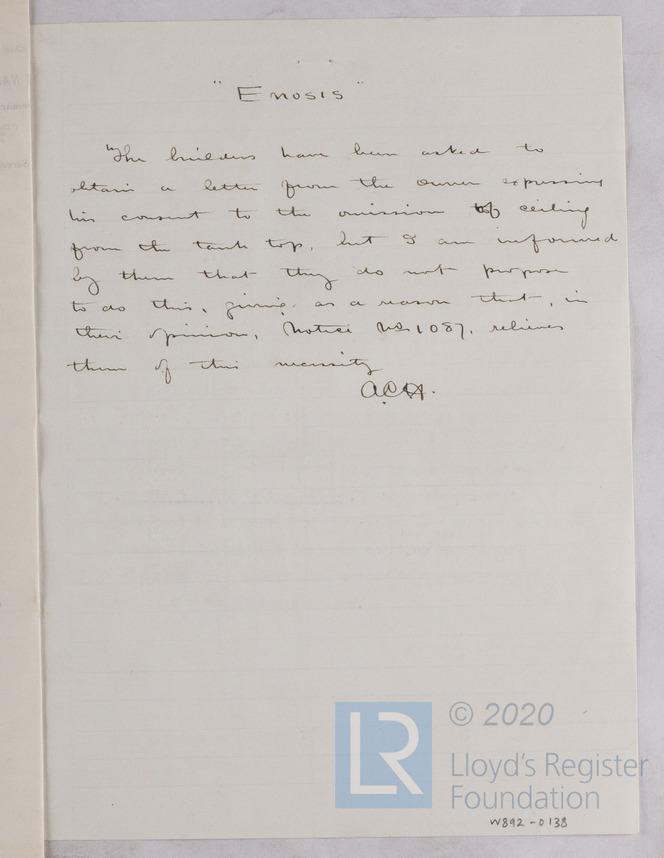 "Enosis"
The builders have been asked to
obtain a letter from the owner expressing
his consent to the omission of ceiling
from the tank top, but I am informed
by them that they do not propose
to do this, giving as a reason that, in
their opinion, Notice No 1087, relieves
them of this necessity
A.C.H.
LR
© 2020
Lloyd's Register
Foundation
W892-0138